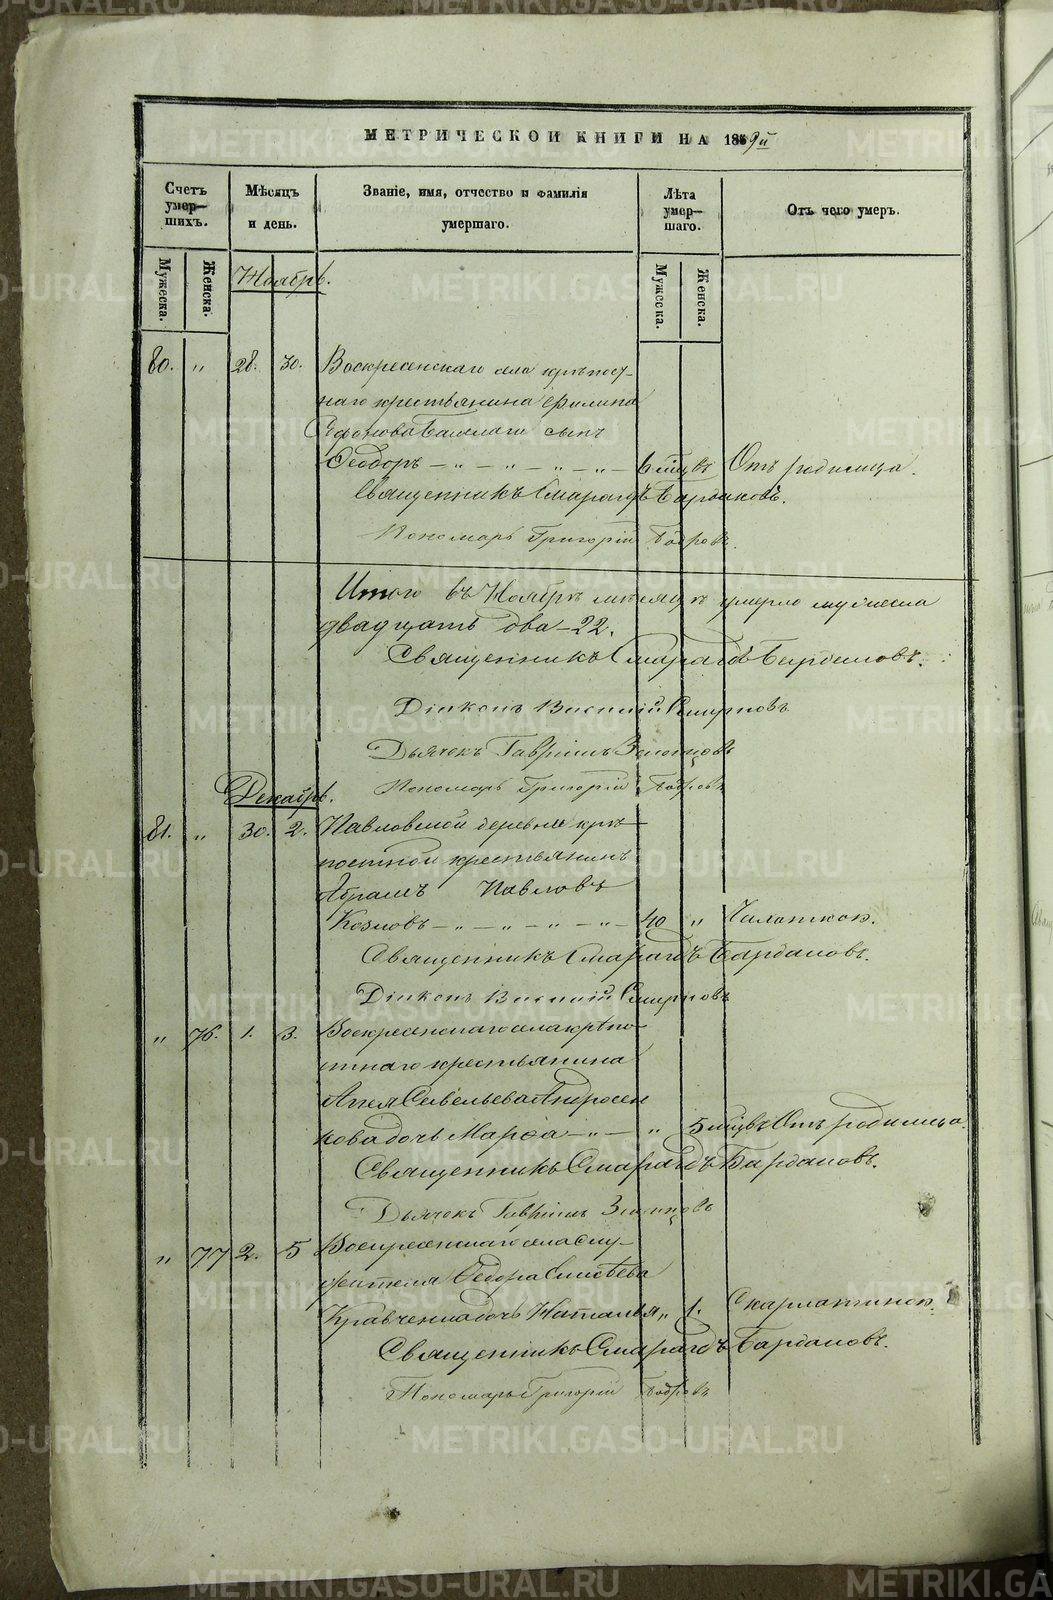 МЕТРИЧЕСКОЙ КНИГИ НА 1869й
Счетъ умер-шихъ.
Мѣсяцъ и день.
Званіе, имя, отчество и фамилія умершаго.
Лѣта умер-шаго.
Отъ чего умеръ.
Мужеска. Женска. Мужеска. Женска.
Ноябрь.
80. " 28. 30. Воскресенскаго села крѣпост-
наго крестьянина Филипа
сынъ
Феодоръ - " - " - " - " - 6 мцвъ Отъ родимца.
Священникъ Смарагдъ
Пономарь Григорій Бобровъ.
Итого въ Ноябрѣ мѣсяцѣ умерло мужеска
двадцать два - 22.
Священникъ Смарагдъ
Діаконъ Василій Смирновъ
Дьячекъ Гавріилъ
Пономарь Григорій Бобровъ
Декабрь.
81. " 30. 2. Павловской деревни крѣ-
постной крестьянинъ
Абрамъ Павловъ
Козловъ - " - " - " - " - 40 " Чахоткою.
Священникъ Смарагдъ
Діаконъ Василій Смирновъ
" 76. 1. 3. Воскресенскаго села крѣпо-
стнаго крестьянина
Савельева Андросен
кова дочь Марфа - " - " 5 мцвъ Отъ родимца.
Священникъ Смарагдъ
Дьячекъ Гавріилъ
" 77 2. 5 Воскресенскаго села слу-
жителя Федора Елисѣева
Кравченко дочь Наталья " 1. Скарлатиною.
Священникъ Смарагдъ
Пономарь Григорій Бобровъ
METRIKI.GASO-URAL.RU